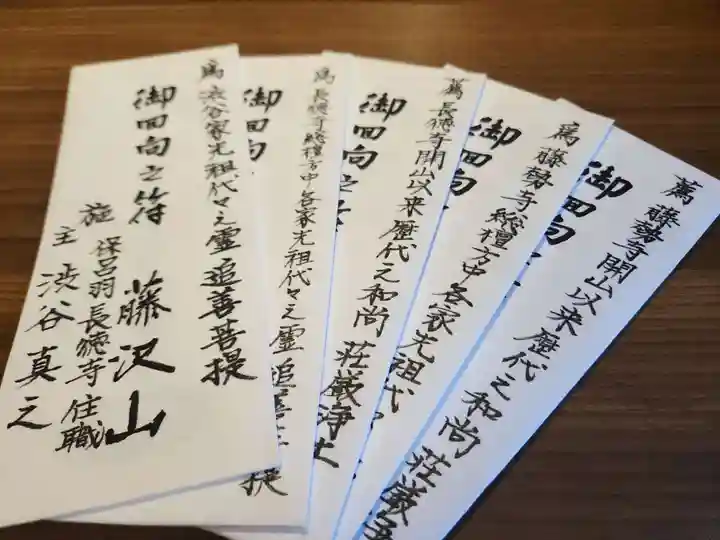 為渋谷家先祖代々之霊追善菩提
御回向之符 藤沢山
施主 保呂羽長徳寺住職
渋谷真之
為長徳寺総檀方中各家先祖代々之霊追善菩提
御回向
為長徳寺開山以来歴代之和尚荘厳浄土
御回向之
為藤勢寺総檀方中各家先祖代
御回向
為藤勢寺開山以来歴代之和尚荘厳浄
御回向